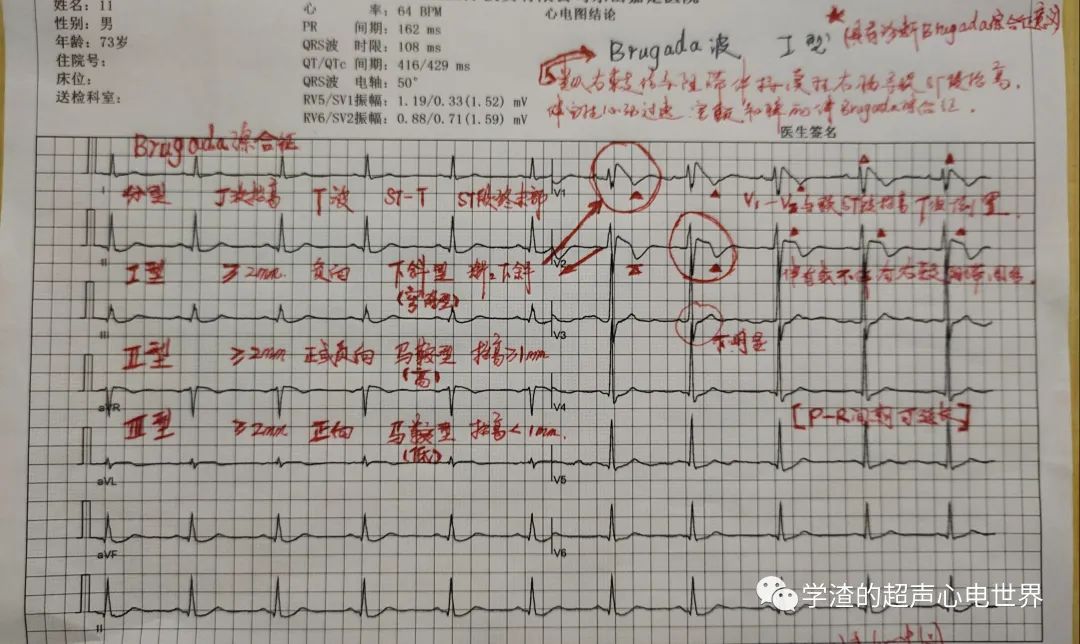 姓名：11
性别：男
年龄：73岁
住院号：
床位：
送检科室：
心 率：64 BPM
PR 间期：162 ms
QRS波 时限：108 ms
QT/QTc 间期：416/429 ms
QRS波 电轴：50°
RV5/SV1振幅：1.19/0.33(1.52) mV
RV6/SV2振幅：0.88/0.71(1.59) mV
心电图结论
Brugada波 I型 (具有诊断Brugada综合征意义)
类似右束支传导阻滞伴持续性右胸导联ST段抬高，
伴室性心动过速、室颤和猝死称Brugada综合征．
医生签名
Brugada综合征
分型 J波抬高 T波 ST-T ST段终末部
I型 ≥2mm 负向 下斜型 下斜
(穹窿型)
II型 ≥2mm 正或负向 马鞍型 抬高≥1mm
(高)
III型 ≥2mm 正向 马鞍型 抬高<1mm．
(低)
V1-V3导联ST段抬高T波倒置．
不明显
[P-R间期可延长]
I
II
III
aVR
aVL
aVF
II
V1
V2
V3
V4
V5
V6
学渣的超声心电世界